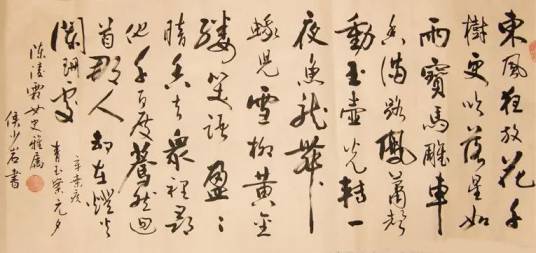 東風狂放花千
樹更吹落星如
雨寶馬雕車
香滿路鳳蕭聲
動玉壺光轉一
夜魚龍舞
蛾兒雪柳黃金
縷笑語盈〻
暗香去衆裡尋
他千百度驀然迴
首那人却在燈火
闌珊處
辛棄疾
青玉案元夕
陳凌霜女史雅屬
侯少岩書